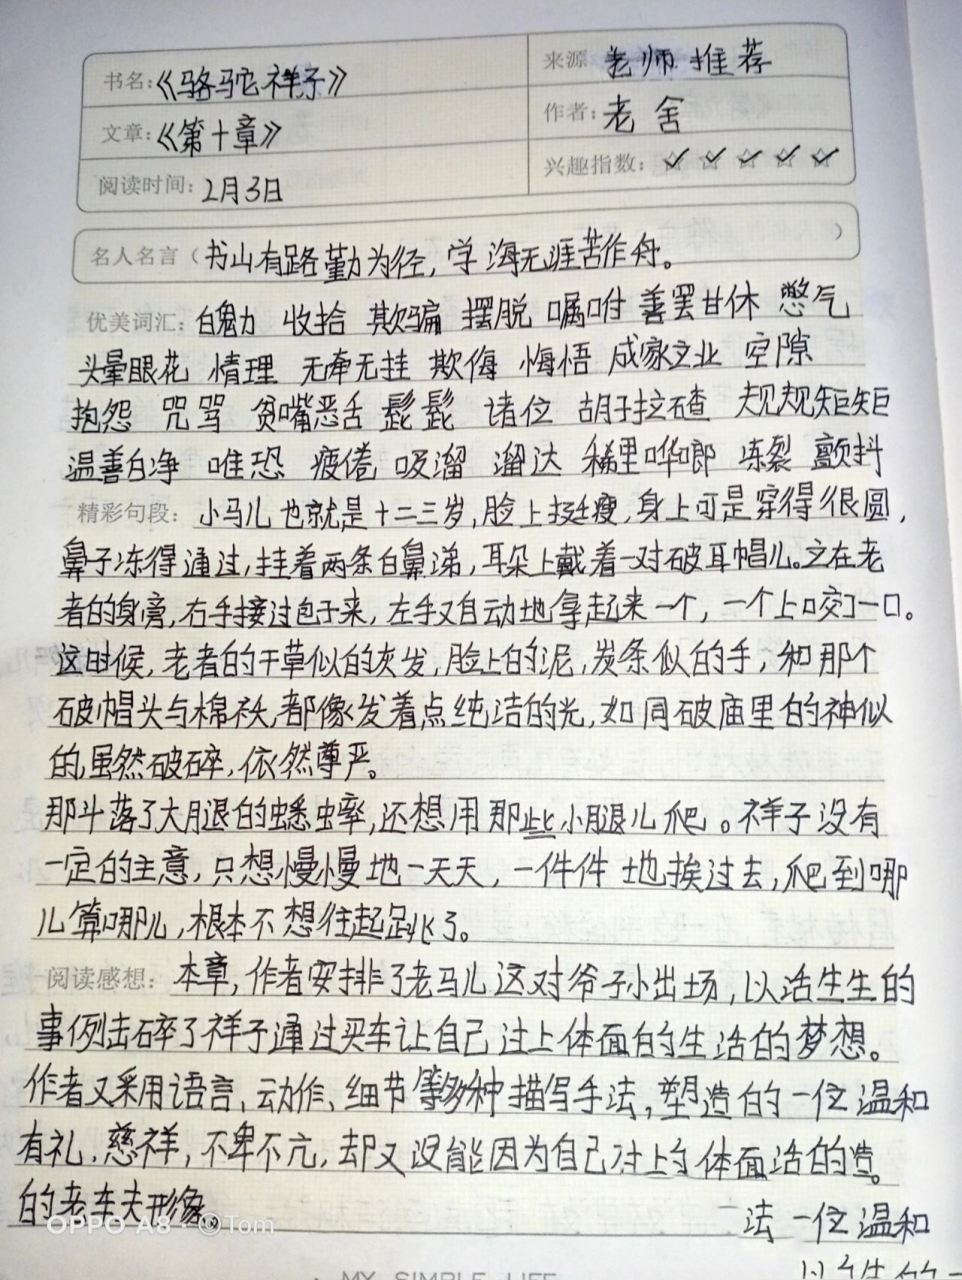 书名:《骆驼祥子》 来源 老师推荐
文章:《第十章》 作者: 老舍
阅读时间: 2月3日 兴趣指数: ☆☆☆☆☆
名人名言（书山有路勤为径，学海无涯苦作舟。）
优美词汇: 收拾 欺骗 摆脱 嘱咐 善罢甘休 憋气
头晕眼花 情理 无牵无挂 欺侮 悔悟 成家立业 空隙
抱怨 咒骂 贫嘴恶舌 诸位 胡子拉碴 规规矩矩
温善白净 唯恐 疲倦 吸溜 溜达 稀里哗啷 冻裂 颤抖
精彩句段: 小马儿也就是十二三岁，脸上挺瘦，身上可是穿得很圆，
鼻子冻得通过，挂着两条白鼻涕，耳朵上戴着一对破耳帽儿。立在老
者的身旁，右手接过包子来，左手又自动地拿起来一个，一个上咬了一口。
这时候，老者的干草似的灰发，脸上的泥，炭条似的手，和那个
破帽头与棉袄，都像发着点纯洁的光，如同破庙里的神似
的，虽然破碎，依然尊严。
那斗落了大腿的蟋蟀，还想用那些小腿儿爬。祥子没有
一定的主意，只想慢慢地一天天，一件件地挨过去，爬到哪
儿算哪儿，根本不想往起跳了。
阅读感想: 本章，作者安排了老马儿这对爷孙出场，以活生生的
事例击碎了祥子通过买车让自己过上体面的生活的梦想。
作者又采用语言、动作、细节等多种描写手法，塑造的一位温和
有礼，慈祥，不卑不亢，却又没能因为自己过上的体面活的
的老车夫形象。 法一位温和
OPPO A8 · ©Tom
MY SIMPLE LIFE